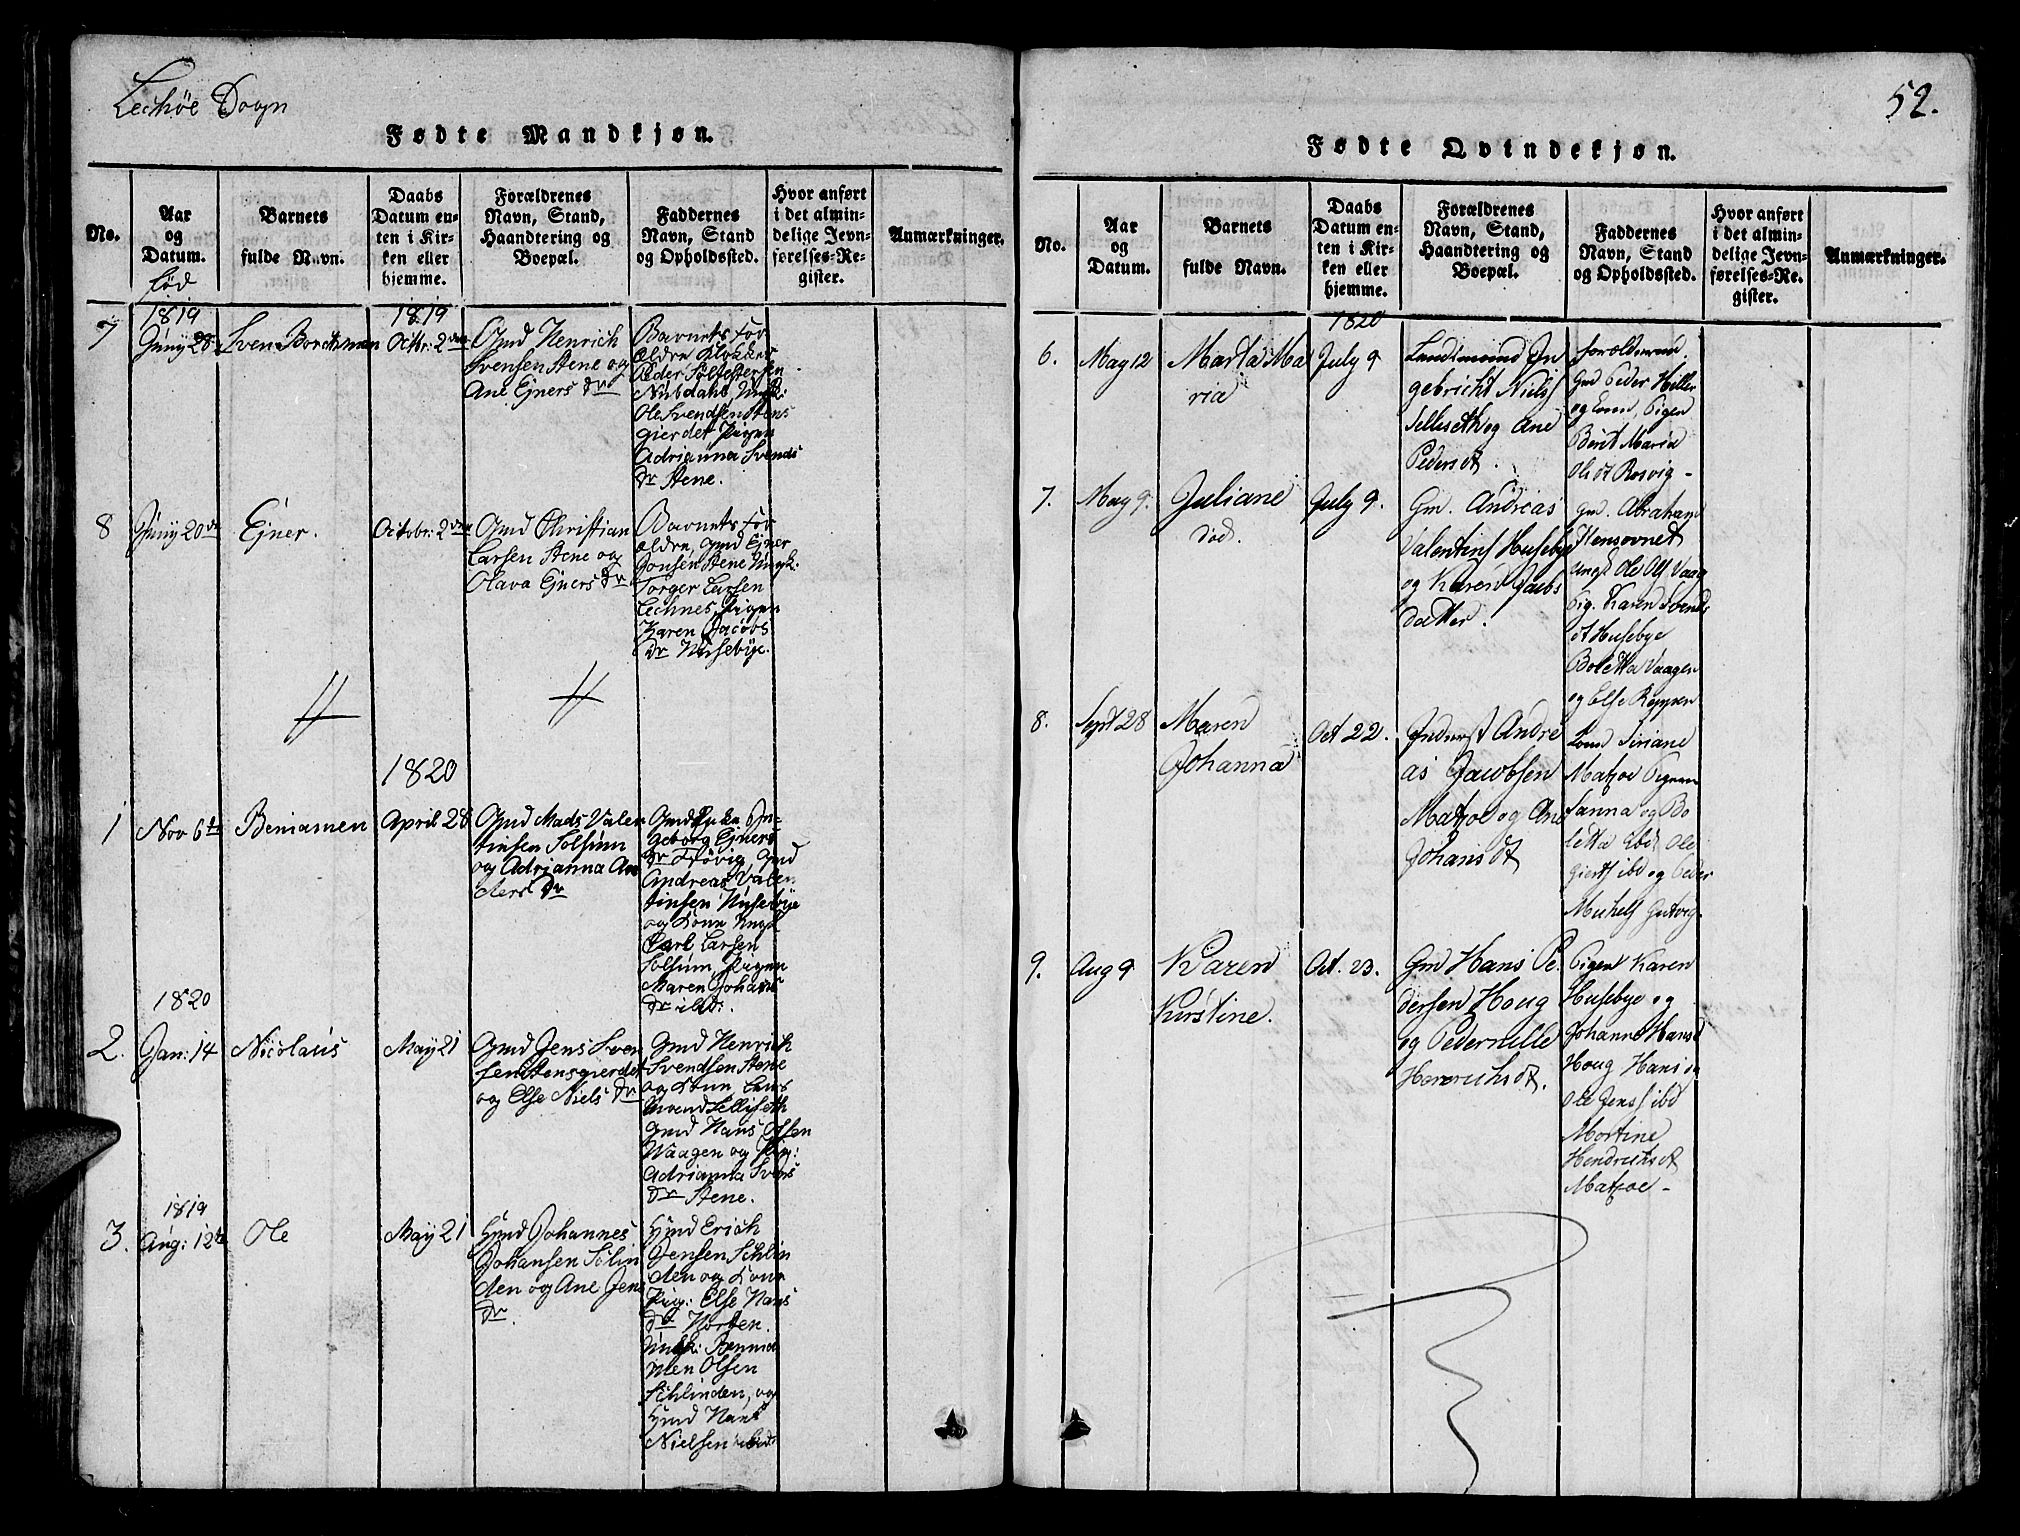 Lechøe Sogn
Fødte Mandkjøn.
No.
Aar
og
Datum.
Barnets
fulde Navn.
Daabs
Datum en-
ten i Kir-
ken eller
hjemme.
Forældrenes
Navn, Stand,
Haandtering og
Boepæl.
Faddernes
Navn, Stand
og Opholdssted.
Hvor anført
i det almin-
delige Jevn-
førelses-Re-
gister.
Anmærkninger.
fød
1819
1819
7
Juny 28
Sven
Octbr: 2den
Gmd Henrich
Svensen Stene og
Ane Ejners Dr
Barnets For
ældre Klokker
Peder
Nübdahl, Ungk:
Ole Svendsen Stens
gierdet Pigen
Adrianna Svends
Dr Stene.
8
Juny 20de
Ejner.
Octobr: 2den
Gmd Christian
Larsen Stene og
Olava Ejners Dr
Barnets For
ældre, Gmd Ejner
Jonsen Stene Ungk:
Torger Larsen
Lechnes, Pigen
Karen Jacobs
Dr Husebye.
1820
1
Nov 6te
Beniamen
April 28
Gmd Mads Valen
tinsen Solsüm
og Adrianna An
ders Dr
Gmd Enke In-
geborg Ejners
Dr Gmd
Andreas Valen
tinsen Husebye
og Kone Ungk
Carl Larsen
Solsüm, Pigen
Maren Johans
Dr ibd:.
1820
2.
Jan: 14
Nicolaus
May 21
Gmd Jens Sven
sen Stensgierdet
og Else Niels Dr
Gmd Henrich
Svendsen Stene
og Kone Lars
Sellseth
Gmd Hans Olsen
Waagen og Pig:
Adrianna Svens
Dr Stene.
1819
3.
Aug: 12te
Ole
May 21
Hmd Johannes
Johansen Solin
den og Ane Jens
Dr.
Hmd Erich
Jensen Schlin
den og Kone
Pig: Else Hans
Dr Horten.
Ungk: Bennia
men Olsen
Schlinden, og
Hmd Hans
Nielsen ibid:
52.
Fødte Qvindekjøn.
No.
Aar
og
Datum.
Barnets
fulde Navn.
Daabs
Datum en-
ten i Kir-
ken eller
hjemme.
Forældrenes
Navn, Stand,
Haandtering og
Boepæl.
Faddernes
Navn, Stand
og Opholdssted.
Hvor anført
i det almin-
delige Jevn-
førelses-Re-
gister.
Anmærkninger.
1820
6.
May 12
Marta Ma
ria
July 9
Landsmand In
gebricht Niels
Selleseth og Ane
Pedersdt.
Forælderne.
Gm Peder Hiller
og kone, Pigen
Berit Maria
Olsdt Rosvig -
7.
May 9
Juliane
død.
July 9.
Gm. Andreas
Valentins Husebye
og Karen Jacobs
datter.
Gm. Abraham
Hensovnet
Ungk Ole Ols Vaag
Pig. Karen Svends
dt Husebye
Boletta Vaagen
og Else Reppen
8.
Sept 28
Maren
Johanna
Oct 22.
Inderst Andre
as Jacobsen
Matzoe og Ane
Johansdt
Kone Siriane
Matzoe Pigerne
Sanna og Bo
letta Ibid Ole
Gierts ibd og Peder
Michels Gutvig
9.
Aug 9
Karen
Kirstine.
Oct. 23.
Gm Hans Pe.
dersen Houg
og Pedernille
Henrichsdt.
Pigen Karen
Husebye og
Johanne Hansd
Houg Hans og
Ole Jens ibd
Mortine
Hendrichsdt
Matzoe -